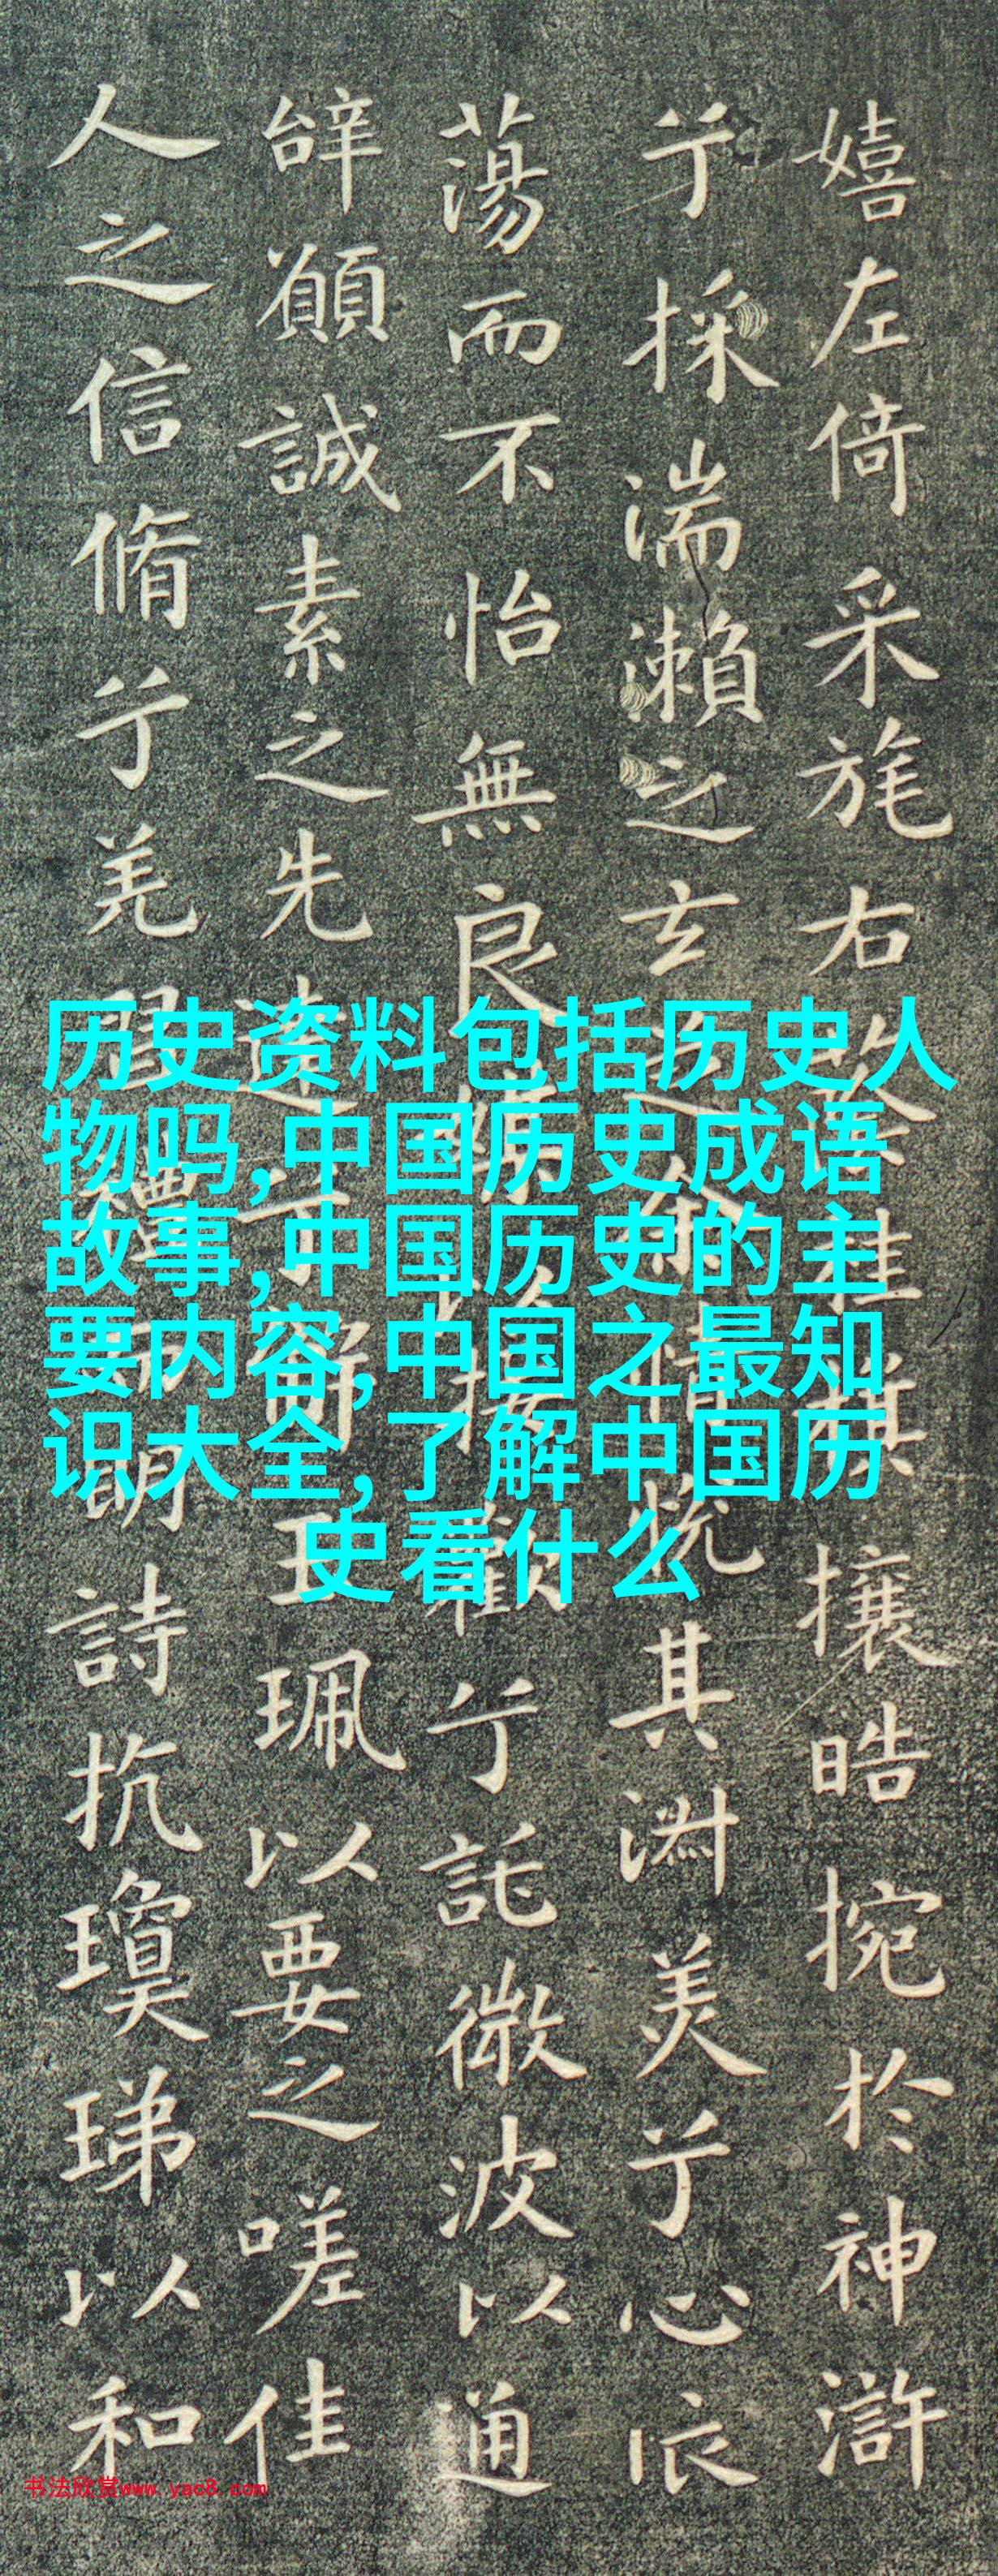 嬉左倚采旄右蔭桂旗攘皓捥於神滸
兮採湍瀨之玄芝余情悅其淑美兮心振
蕩而不怡無良媒以接歡兮託微波以通
辭願誠素之先達兮解玉珮以要之嗟佳
人之信脩兮羌習禮而明詩抗瓊珶以和
历史资料包括历史人
物吗,中国历史成语
故事,中国历史的主
要内容,中国之最知
识大全,了解中国历
史看什么
书法欣赏www.yac8.com